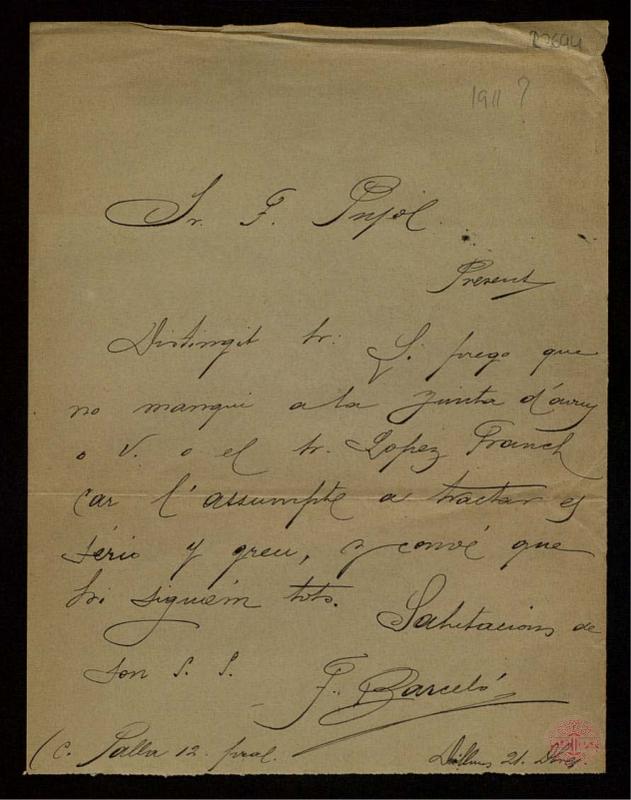 R2694
1911?
Sr. F. Pujol.
Present
Distingit Sr: Li prego que
no manqui a la Junta d'avuy
o V. o el Sr. Lopez Franch
car l'assumpte a tractar es
sério y greu, y convé que
hi siguém tots.
Salutacions de
son S. S.
F. Barceló
(c. Palla 12. pral.
Dilluns 21.